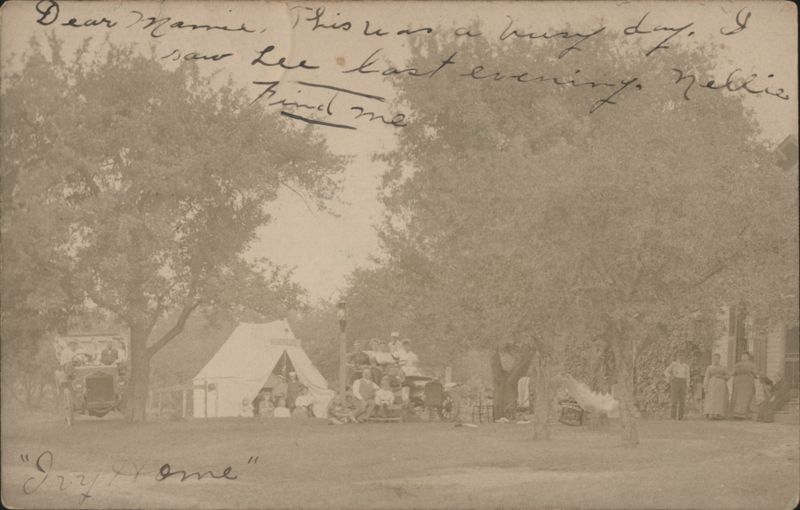 Dear Mamie, This was a busy day. I
saw Lee last evening. Nellie
Find me
"Ivy Home"